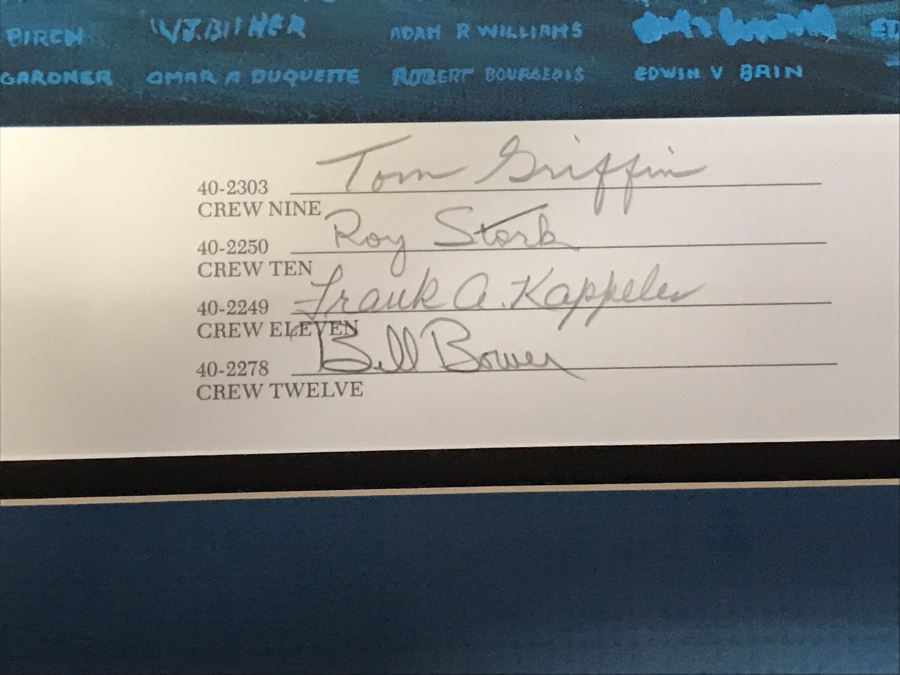 BIREN W.J. BITHER ADAM R WILLIAMS ED
GARDNER OMAR A DUQUETTE ROBERT BOURGEOIS EDWIN V BAIN
40-2303 Tom Griffin
CREW NINE
40-2250 Roy Stork
CREW TEN
40-2249 Frank A. Kappeler
CREW ELEVEN
40-2278 Bill Bower
CREW TWELVE